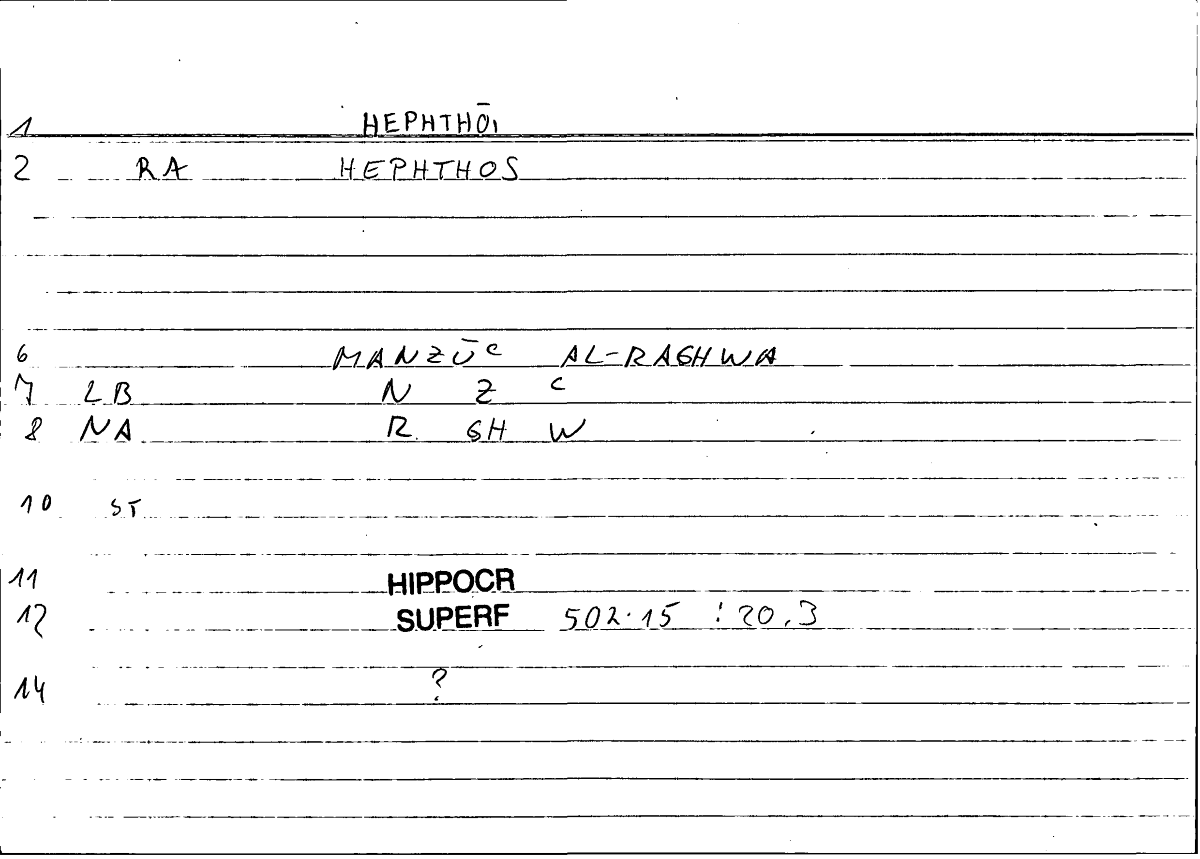 1 HEPHTHŌI
2 RA HEPHTHOS
6 MANZŪᶜ AL-RAGHWA
7 LB N Z ᶜ
8 NA R GH W
10 ST
11 HIPPOCR
12 SUPERF 502.15 : 20,3
14 ?